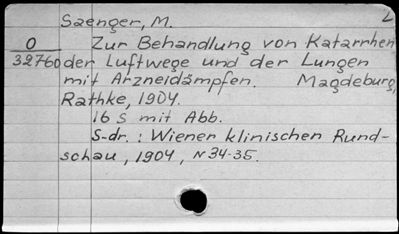 L
Saenger, M.
O Zur Behandlung von Katarrhen
32760 der Luftwege und der Lungen
mit Arzneidämpfen. Magdeburg,
Rathke, 1904.
16 S mit Abb.
S-dr.: Wiener klinischen Rund-
schau, 1904, N 34-35.